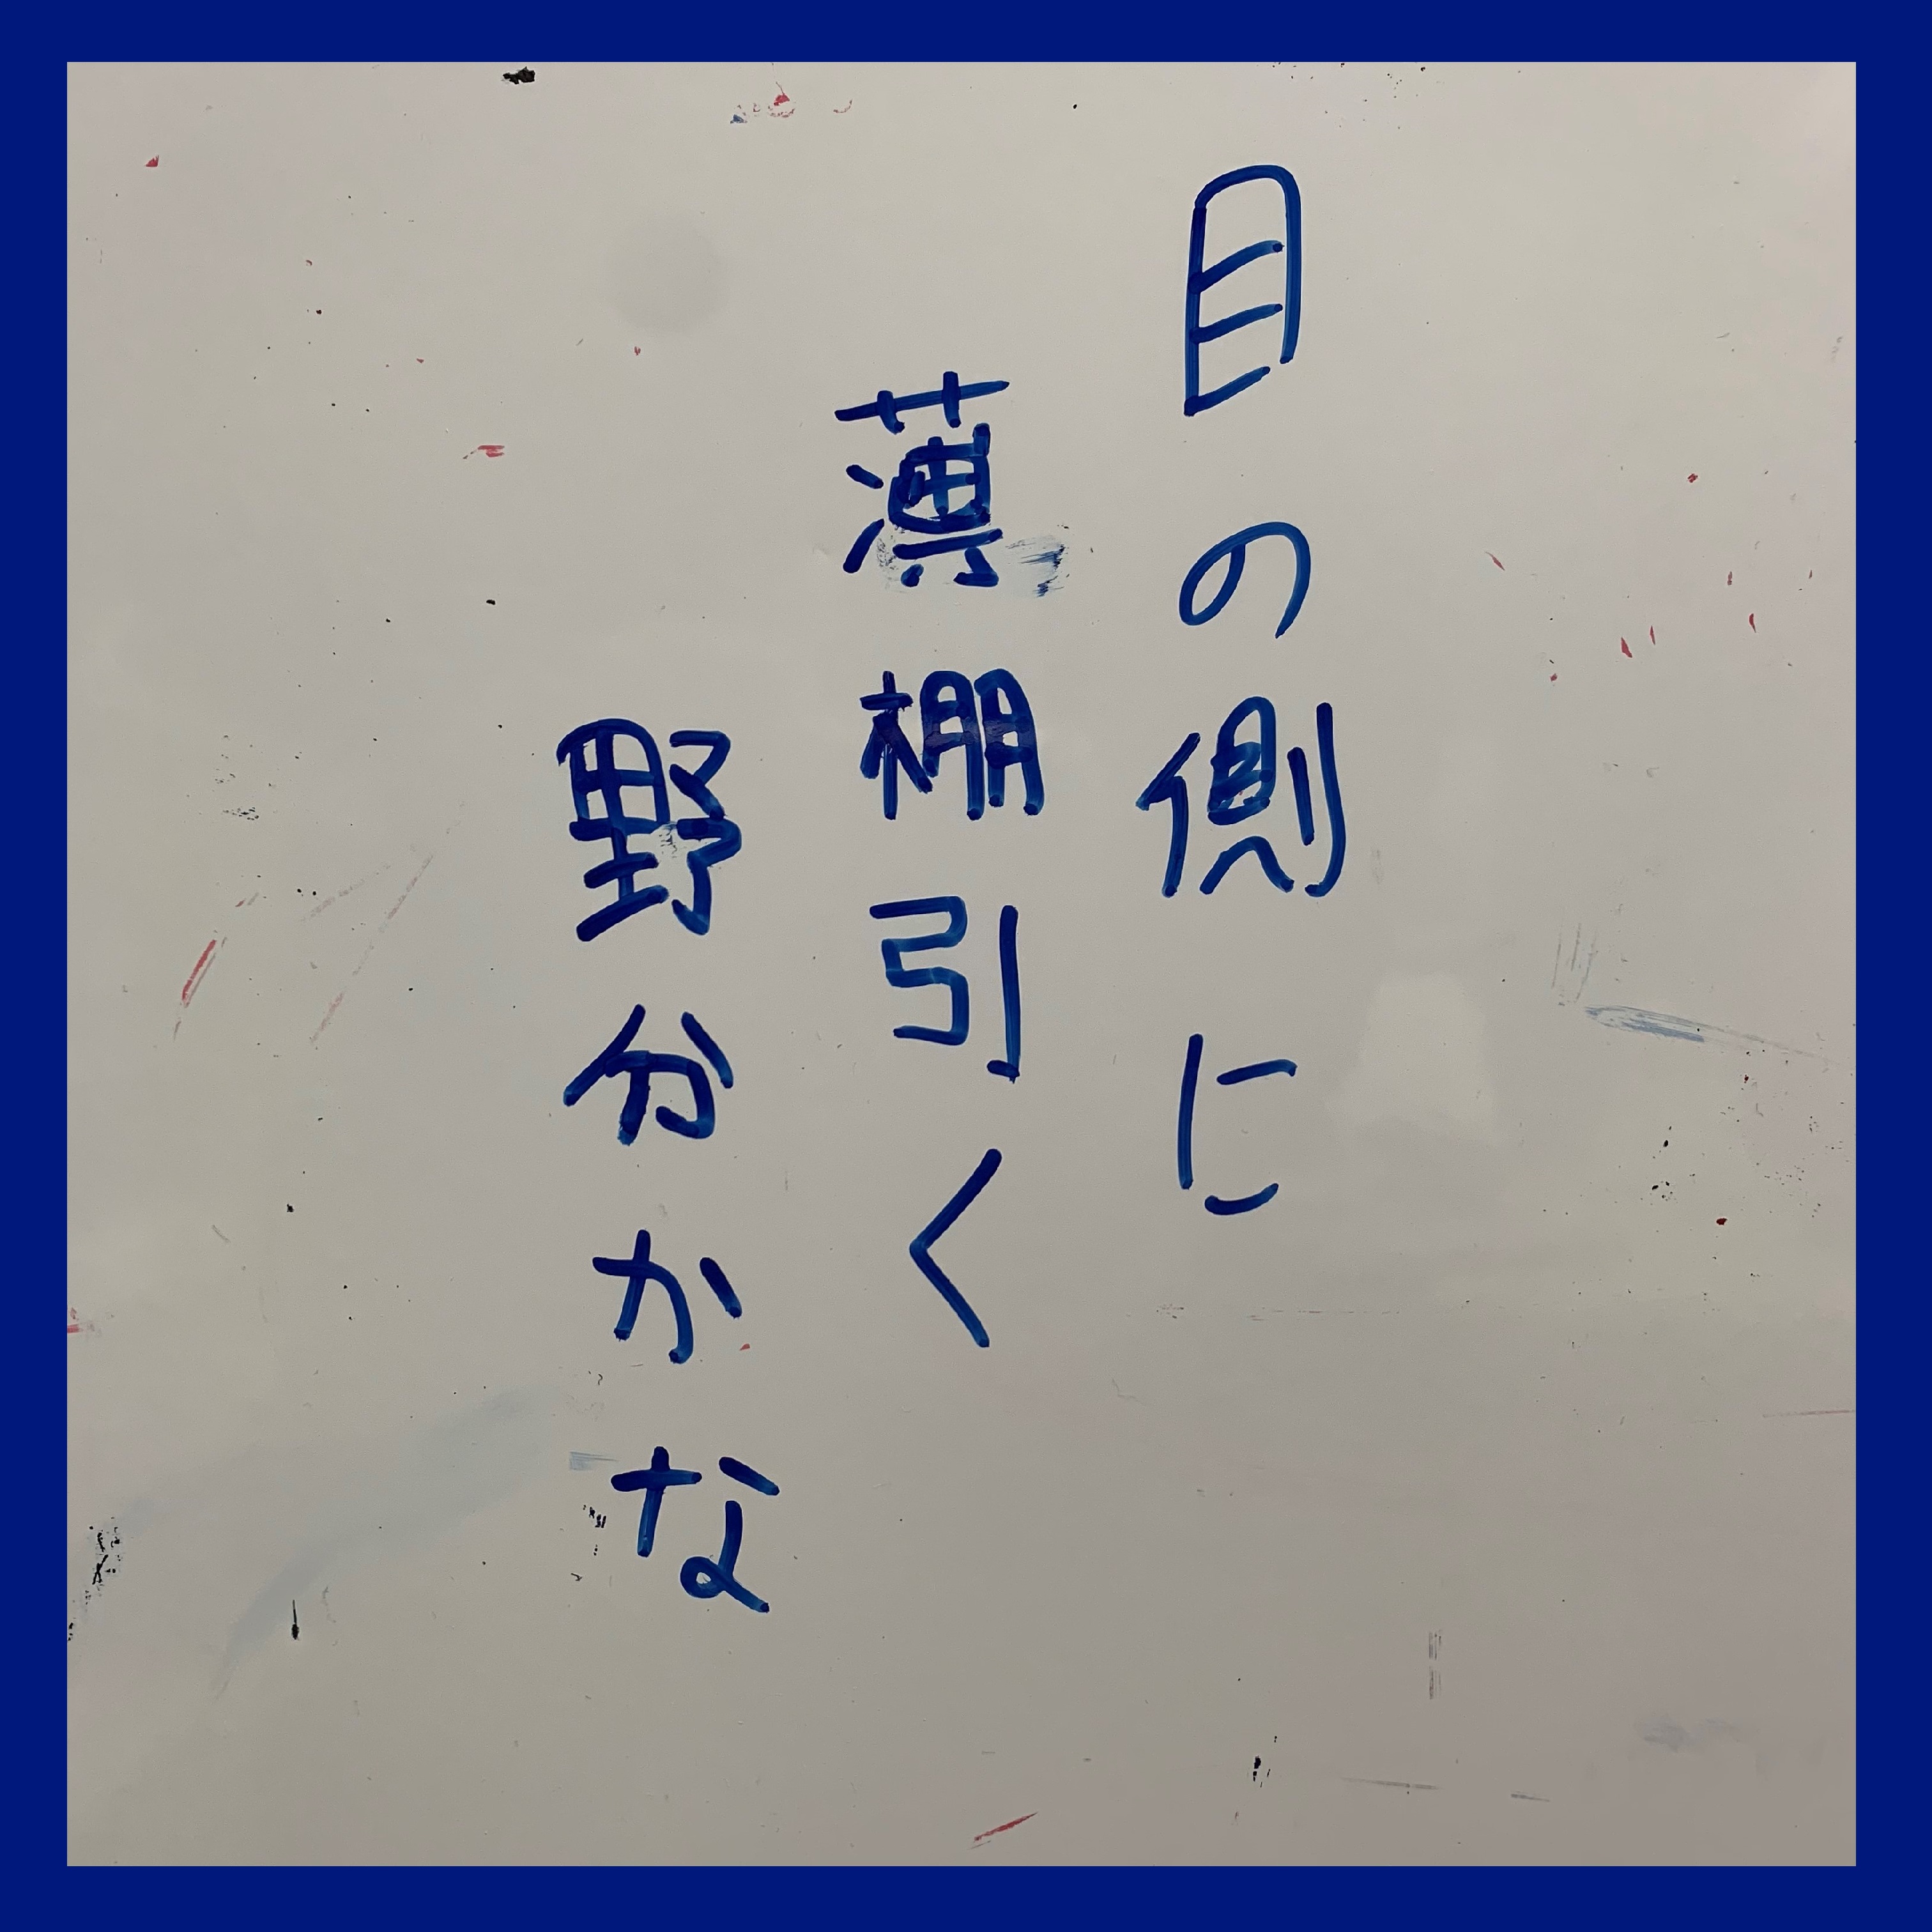 目の側に
薄棚引く
野分かな